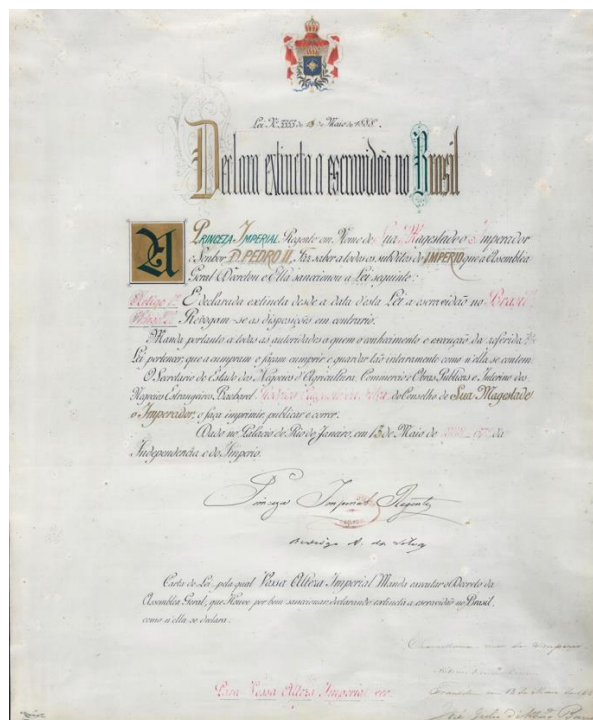 Lei Nº 3353 de 13 de Maio de 1888.
Declara extincta a escravidão no Brasil
A PRINCEZA IMPERIAL Regente em Nome de Sua Magestade o Imperador
o Senhor D. PEDRO II, Faz saber a todos os subditos do IMPERIO que a Assembléa
Geral Decretou e Ella sanccionou a Lei seguinte:
Artigo 1º É declarada extincta desde a data d'esta Lei a escravidão no Brasil.
Artigo 2º Revogam-se as disposições em contrario.
Manda portanto a todas as autoridades a quem o conhecimento e execução da referida
Lei pertencer, que a cumpram e façam cumprir e guardar tão inteiramente como n'ella se contem.
O Secretario de Estado dos Negocios d'Agricultura, Commercio e Obras Publicas e Interino dos
Negocios Estrangeiros, Bacharel Rodrigo Augusto da Silva do Conselho de Sua Magestade
o Imperador, o faça imprimir, publicar e correr.
Dado no Palacio do Rio de Janeiro, em 13 de Maio de 1888 67º da
Independencia e do Imperio.
Princeza Imperial Regente
Rodrigo A. da Silva
Carta de Lei, pela qual Vossa Alteza Imperial Manda executar o Decreto da
Assembléa Geral, que Houve por bem sanccionar declarando extincta a escravidão no Brasil,
como n'ella se declara.
Para Vossa Alteza Imperial ver.
Chancellaria mor do Imperio